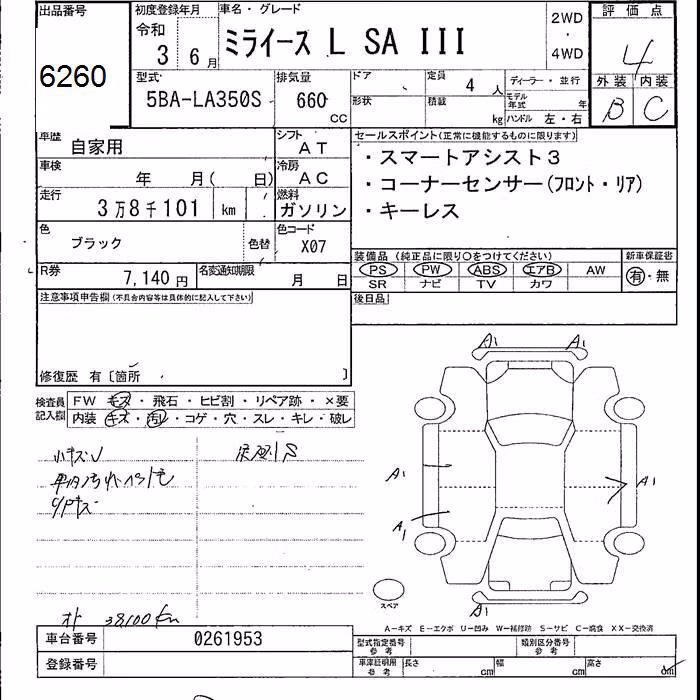 出品番号 初度登録年月 車名・グレード 2WD 評価点
令和
3 6月 ミライース L SA III ・ 4WD 4
6260
型式 排気量 ドア 定員 4人 ディーラー・並行 外装 内装
5BA-LA350S 660 CC 形状 積載 kg モデル年式 年 B C
ハンドル 左・右
車歴 自家用 シフト AT セールスポイント(正常に機能するものに限ります)
車検 年 月( 日) 冷房 AC ・スマートアシスト3
走行 3万8千101 km 燃料 ガソリン ・コーナーセンサー(フロント・リア)
・キーレス
色 ブラック 色替 色コード X07
装備品 (純正品に限り○をつけてください) 新車保証書
R券 7,140円 名変通知期限 月 日 PS PW ABS エアB AW 有・無
SR ナビ TV カワ
注意事項申告欄(不具合内容等は具体的に記入して下さい) 後日品
修復歴 有〔箇所 〕
検査員記入欄 FW キズ・飛石・ヒビ割・リペア跡・×要
内装 キズ・汚レ・コゲ・穴・スレ・キレ・破レ
A1 A1
小キズ
A1 A1
A1
38100km
スペア
A1
A-キズ E-エクボ U-凹み W-補修跡 S-サビ C-腐食 XX-交換済
車台番号 0261953 型式指定番号 参考 類別区分番号 参考
登録番号 車庫証明用 参考 長さ cm 幅 cm 高さ cm